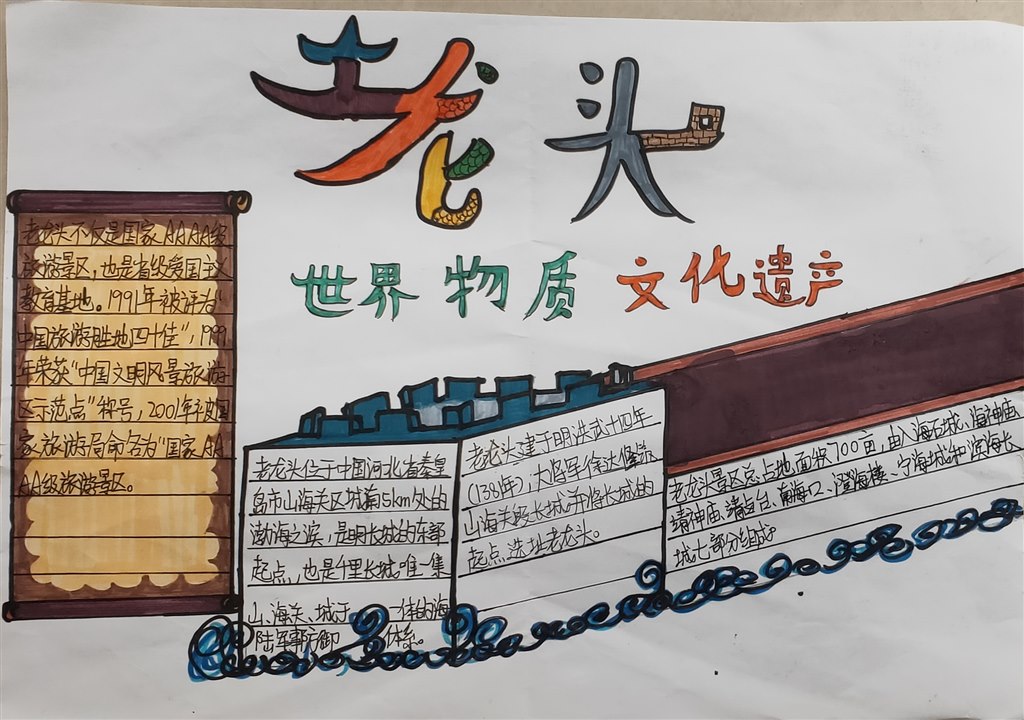 老龙头
世界物质文化遗产
老龙头不仅是国家AAAA级
旅游景区,也是省级爱国主义
教育基地。1991年被评为“
中国旅游胜地四十佳”,1999
年荣获“中国文明风景旅游
区示范点”称号,2001年被国
家旅游局命名为“国家AA
AA级旅游景区。
老龙头位于中国河北省秦皇
岛市山海关区城南5km处的
渤海之滨,是明长城的东部
起点,也是千里长城唯一集
山、海、关、城于一体的海
陆军事防御体系。
老龙头建于明洪武十四年
(1381年),大将军徐达修筑
山海关段长城并将长城的
起点选址老龙头。
老龙头景区总占地面积700亩,由入海石城、海神庙
靖神庙、靖卤台、南海口、澄海楼、宁海城和滨海长
城七部分组成。